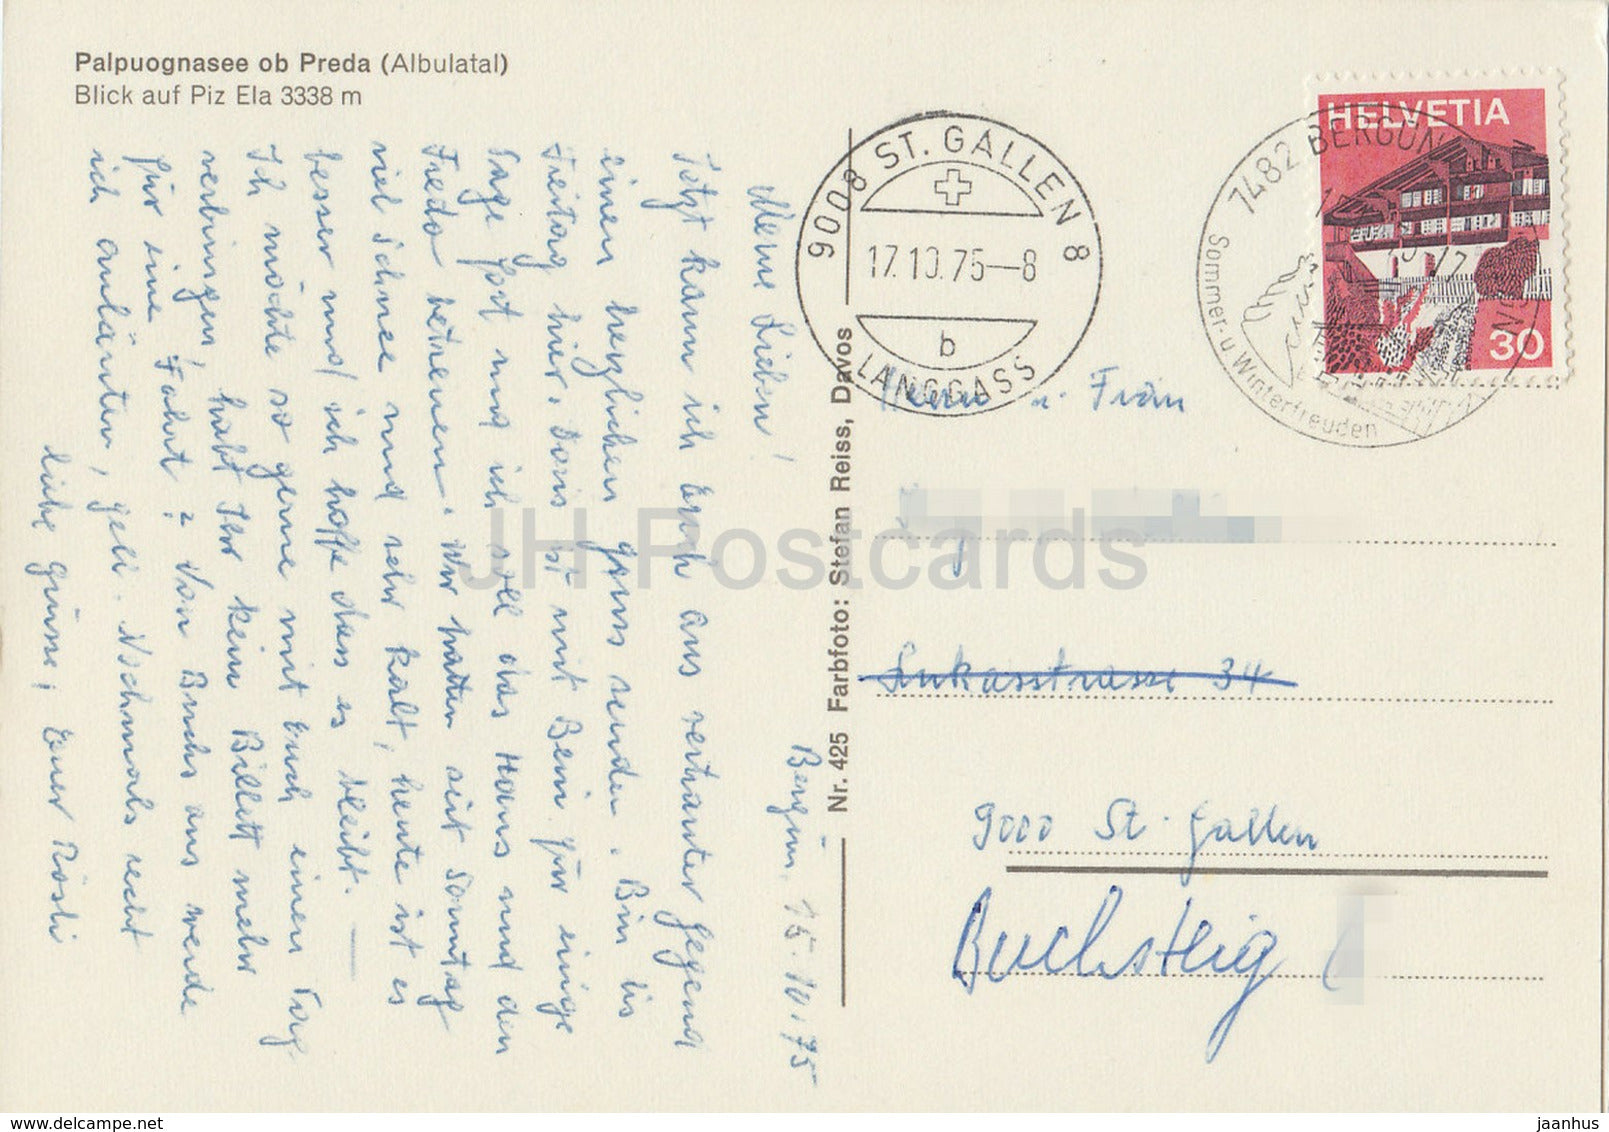 Palpuognasee ob Preda (Albulatal)
Blick auf Piz Ela 3338 m
Bergün, 15.10.75
Meine Lieben!
Jetzt kann ich Euch aus vertrauter Gegend
einen herzlichen Gruss senden. Bin bis
Freitag hier, Doris ist mit Beni für einige
Tage fort und ich soll das Haus und den
Fredo betreuen. Wir hatten seit Sonntag
viel Schnee und sehr kalt, heute ist es
besser und ich hoffe dass es bleibt.
Ich möchte so gerne mit Euch einen Tag
verbringen, habt Ihr kein Billett mehr
für eine Fahrt? Von Buchs aus werde
ich anläuten, gell. Nochmals recht
liebe Grüsse, Euer Rösli
Nr. 425 Farbfoto: Stefan Reiss, Davos
9008 ST. GALLEN 8
17.10.75—8
b
LANGGASS
HELVETIA
30
7482 BERGÜN
Sommer- u. Winterfreuden
u. Frau
Lukasstrasse 34
9000 St. Gallen
Buchsteig
JH Postcards
www.delcampe.net
jaanhus